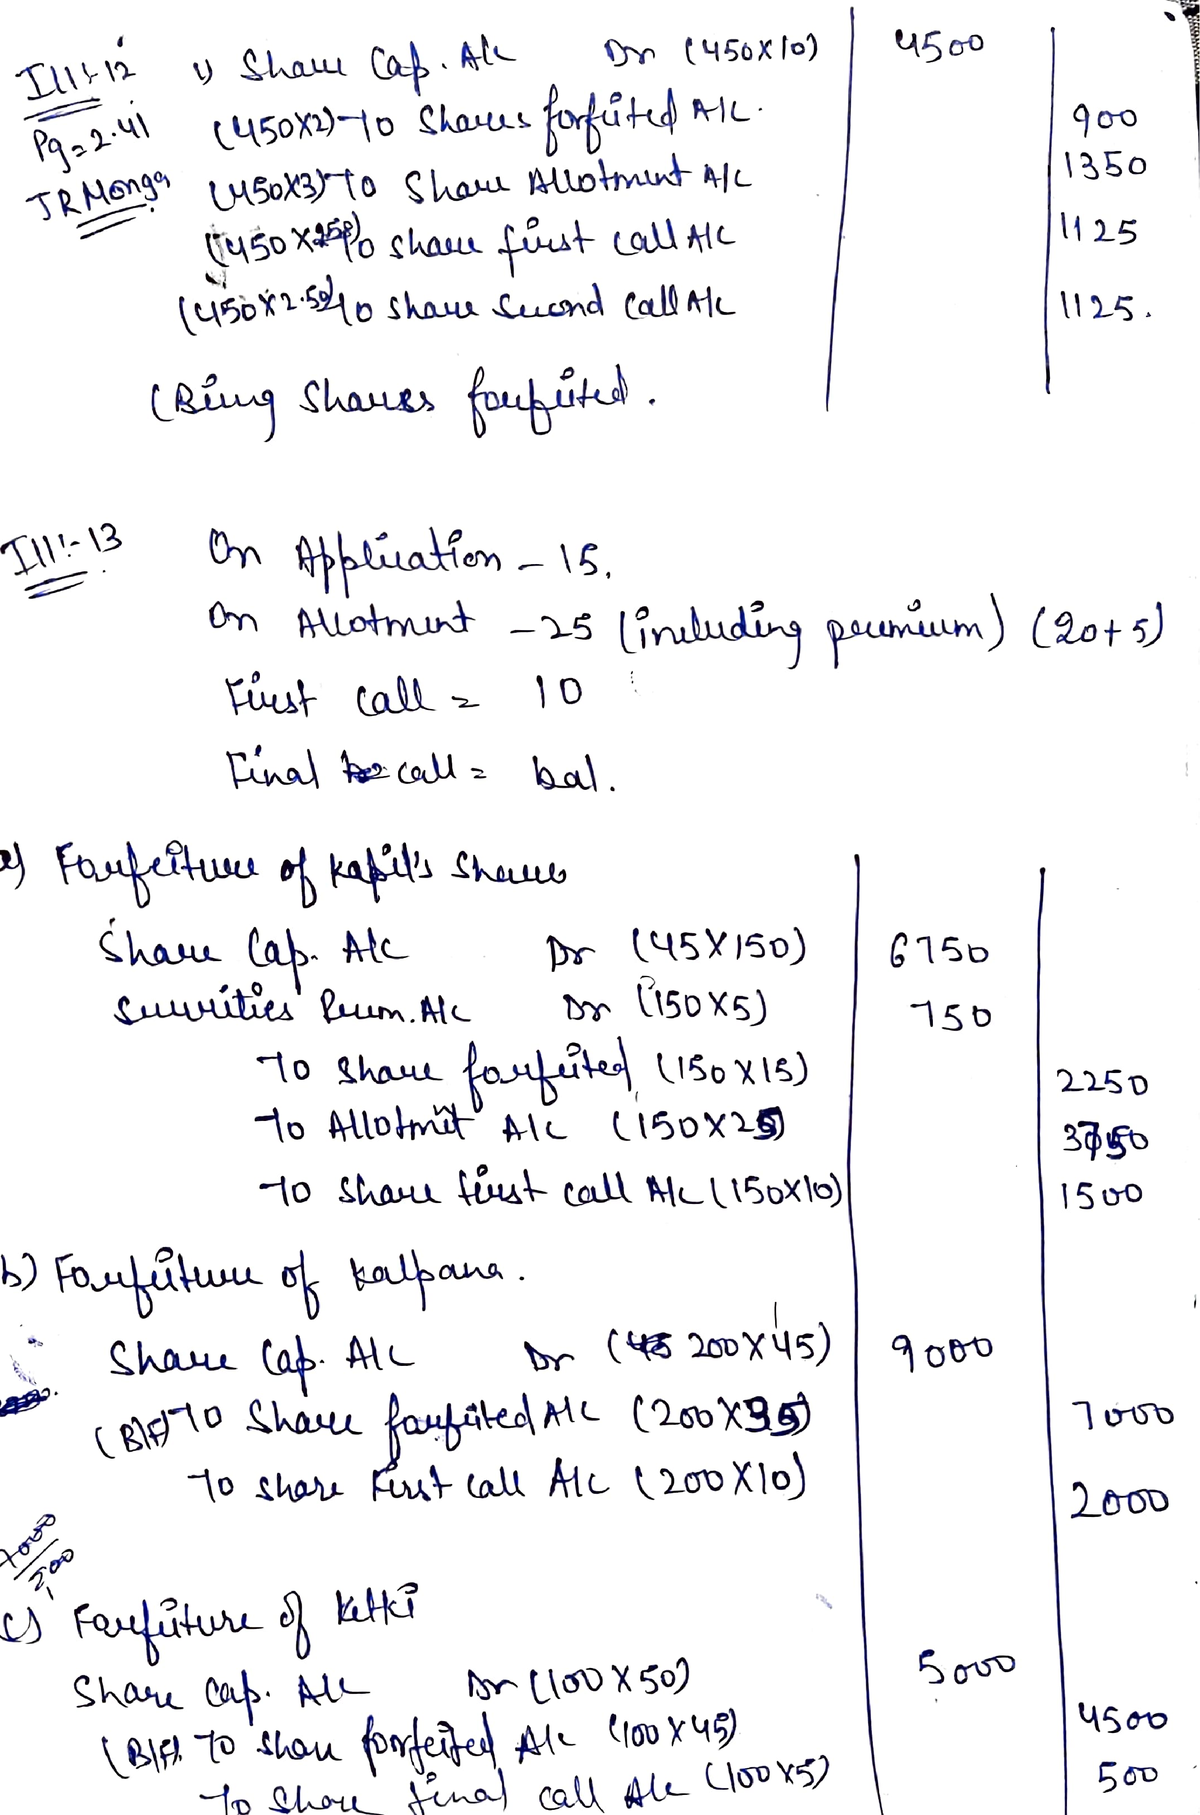 Ill:-12 1) Share Cap. A/c Dr (450X10) 4500
Pg = 2.41 (450X2) To Shares forfeited A/c. 900
JR Monga (450X3) To Share Allotment A/c 1350
(450X2.50) To share first call A/c 1125
(450X2.50) To share second call A/c 1125.
(Being Shares forfeited.
Ill:-13 On Application - 15.
On Allotment - 25 (including premium) (20+5)
First call = 10
Final call = bal.
a) Forfeiture of Kapil's Shares
Share Cap. A/c Dr (45X150) 6750
Securities Prem. A/c Dr (150X5) 750
To share forfeited (150X15) 2250
To Allotmnt A/c (150X25) 3750
To share first call A/c (150X10) 1500
b) Forfeiture of Kalpana.
Share Cap. A/c Dr (200X45) 9000
(B/F) To Share forfeited A/c (200X35) 7000
To share First call A/c (200X10) 2000
7000/200
c) Forfeiture of Ketki
Share Cap. A/c Dr (100X50) 5000
(B/F). To share forfeited A/c (100X45) 4500
To Share final call A/c (100X5) 500